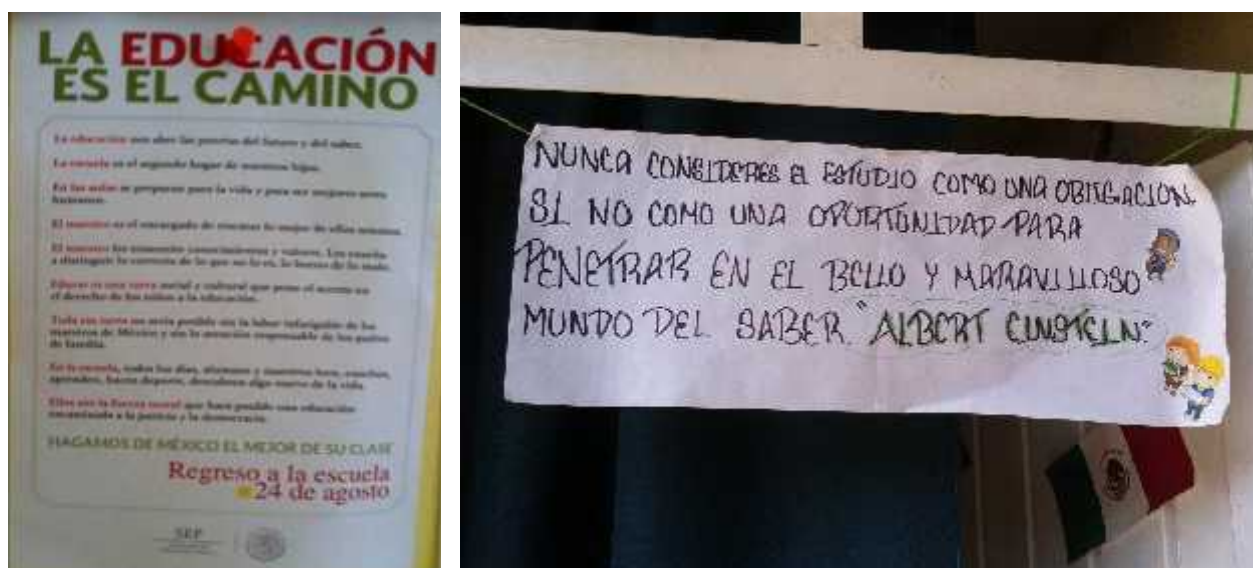 LA EDUCACIÓN
ES EL CAMINO
La educación nos abre las puertas del futuro y del saber.
La escuela es el segundo hogar de nuestros hijos.
En las aulas se preparan para la vida y para ser mejores seres
humanos.
El maestro es el encargado de rescatar lo mejor de ellos mismos.
El maestro les transmite conocimientos y valores. Les enseña
a distinguir lo correcto de lo que no lo es, lo bueno de lo malo.
Educar es una tarea social y cultural que pone el acento en
el derecho de los niños a la educación.
Toda esta tarea no sería posible sin la labor infatigable de los
maestros de México y sin la atención responsable de los padres
de familia.
En la escuela, todos los días, alumnos y maestros leen, enseñan,
aprenden, hacen deporte, descubren algo nuevo de la vida.
Ellos son la fuerza moral que hace posible una educación
encaminada a la justicia y la democracia.
HAGAMOS DE MÉXICO EL MEJOR DE SU CLASE
Regreso a la escuela
24 de agosto
SEP
NUNCA CONSIDERES EL ESTUDIO COMO UNA OBLIGACION
SI NO COMO UNA OPORTUNIDAD PARA
PENETRAR EN EL BELLO Y MARAVILLOSO
MUNDO DEL SABER "ALBERT EINSTEIN"